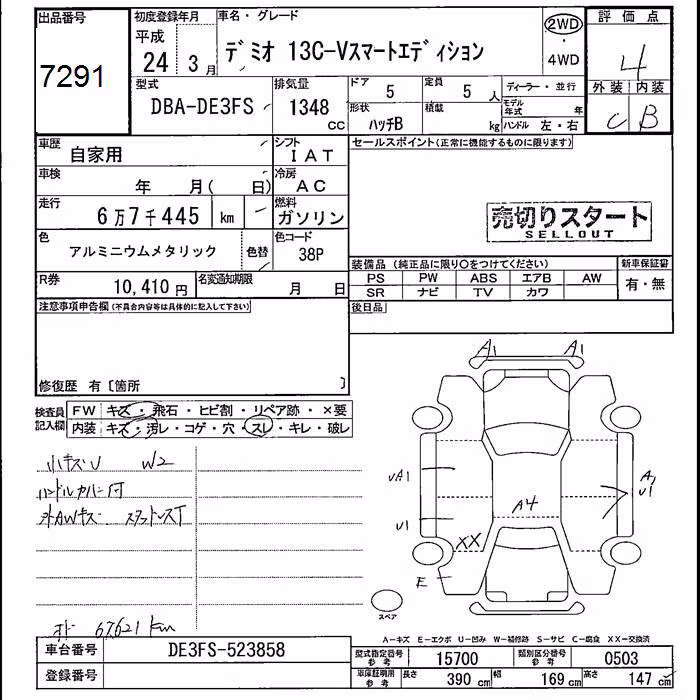 出品番号 初度登録年月 車名・グレード 2WD 評価点
7291 平成 24年 3月 デミオ 13C-Vスマートエディション ・ 4WD 4
外装 内装
C B
型式 排気量 ドア 定員 ディーラー・並行
DBA-DE3FS 1348 CC 5 5人 モデル年式 年
形状 積載
ハッチB kg ハンドル 左・右
車歴 自家用 シフト IAT セールスポイント(正常に機能するものに限ります)
車検 年 月( 日) 冷房 AC
走行 6万7千445 km 燃料 ガソリン
売切りスタート
SELLOUT
色 アルミニウムメタリック 色替 色コード 38P
装備品(純正品に限り○をつけてください) 新車保証書
PS PW ABS エアB AW 有・無
SR ナビ TV カワ
R券 10,410円 名変通知期限 月 日
後日品
注意事項申告欄(不具合内容等は具体的に記入して下さい)
修復歴 有〔箇所 〕
検査員記入欄 FW キズ・飛石・ヒビ割・リペア跡・×要
内装 キズ・汚レ・コゲ・穴・スレ・キレ・破レ
小キズU W2
ハンドルカバー付
外AWキズ スタットレスT
オド 67621km
A1 A1
UA1 A1 U1
A4
U1
XX
E
スペア
A-キズ E-エクボ U-凹み W-補修跡 S-サビ C-腐食 XX-交換済
車台番号 DE3FS-523858
登録番号
型式指定番号 参考 15700 類別区分番号 参考 0503
車庫証明用 参考 長さ 390 cm 幅 169 cm 高さ 147 cm